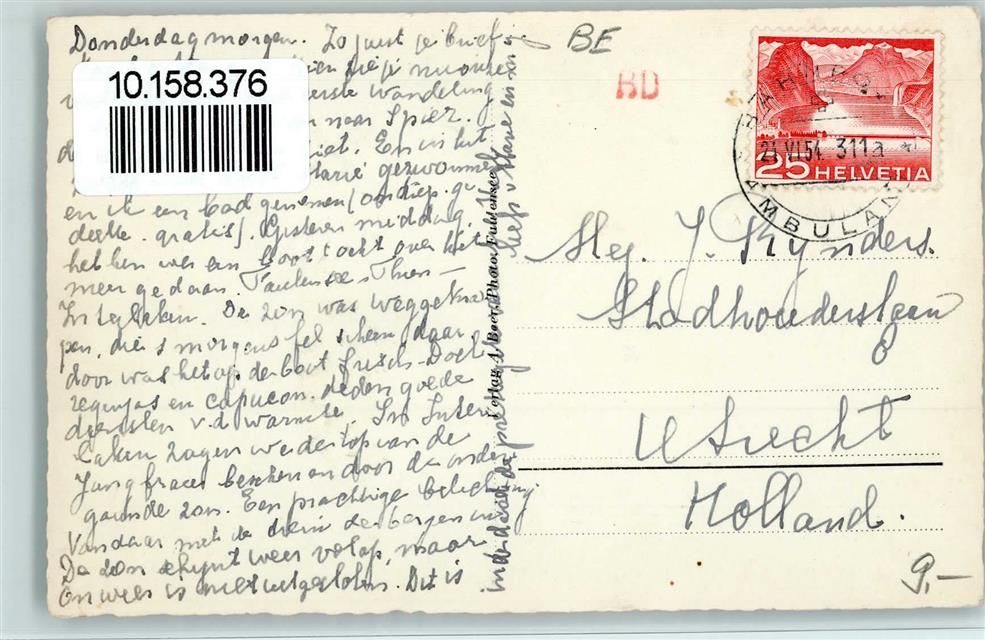 Donderdagmorgen. Zo juist je brief
10.158.376
nieuwe
eerste wandeling
naar Spiez.
niet. En in het
gewonnen
en ik een bad genomen / ondiep ge
deelte. gratis /. Gisteren middag
hebben we een boottocht over het
meer gedaan. Faulensee – Thun –
Interlaken. De zon was weggekro
pen, die 's morgens fel scheen, daar
door was het op de boot frisch. Doch
regenjas en capuchon deden goede
diensten v.d. warmte. In Inter
laken zagen we de top van de
Jungfrau beschenen door de onder
gaande zon. Een prachtige belichting.
Vandaar met de trein de bergen
De zon schijnt weer volop, maar
onweer is niet uitgesloten. Dit is
inderdaad de
Photo, Faulensee
BE
BD
BAHNPOST
AMBULANT
24 VI 54 311a
25 HELVETIA
Mej. J. Rijnders.
Stadhouderslaan
8
Utrecht
Holland.
9,–